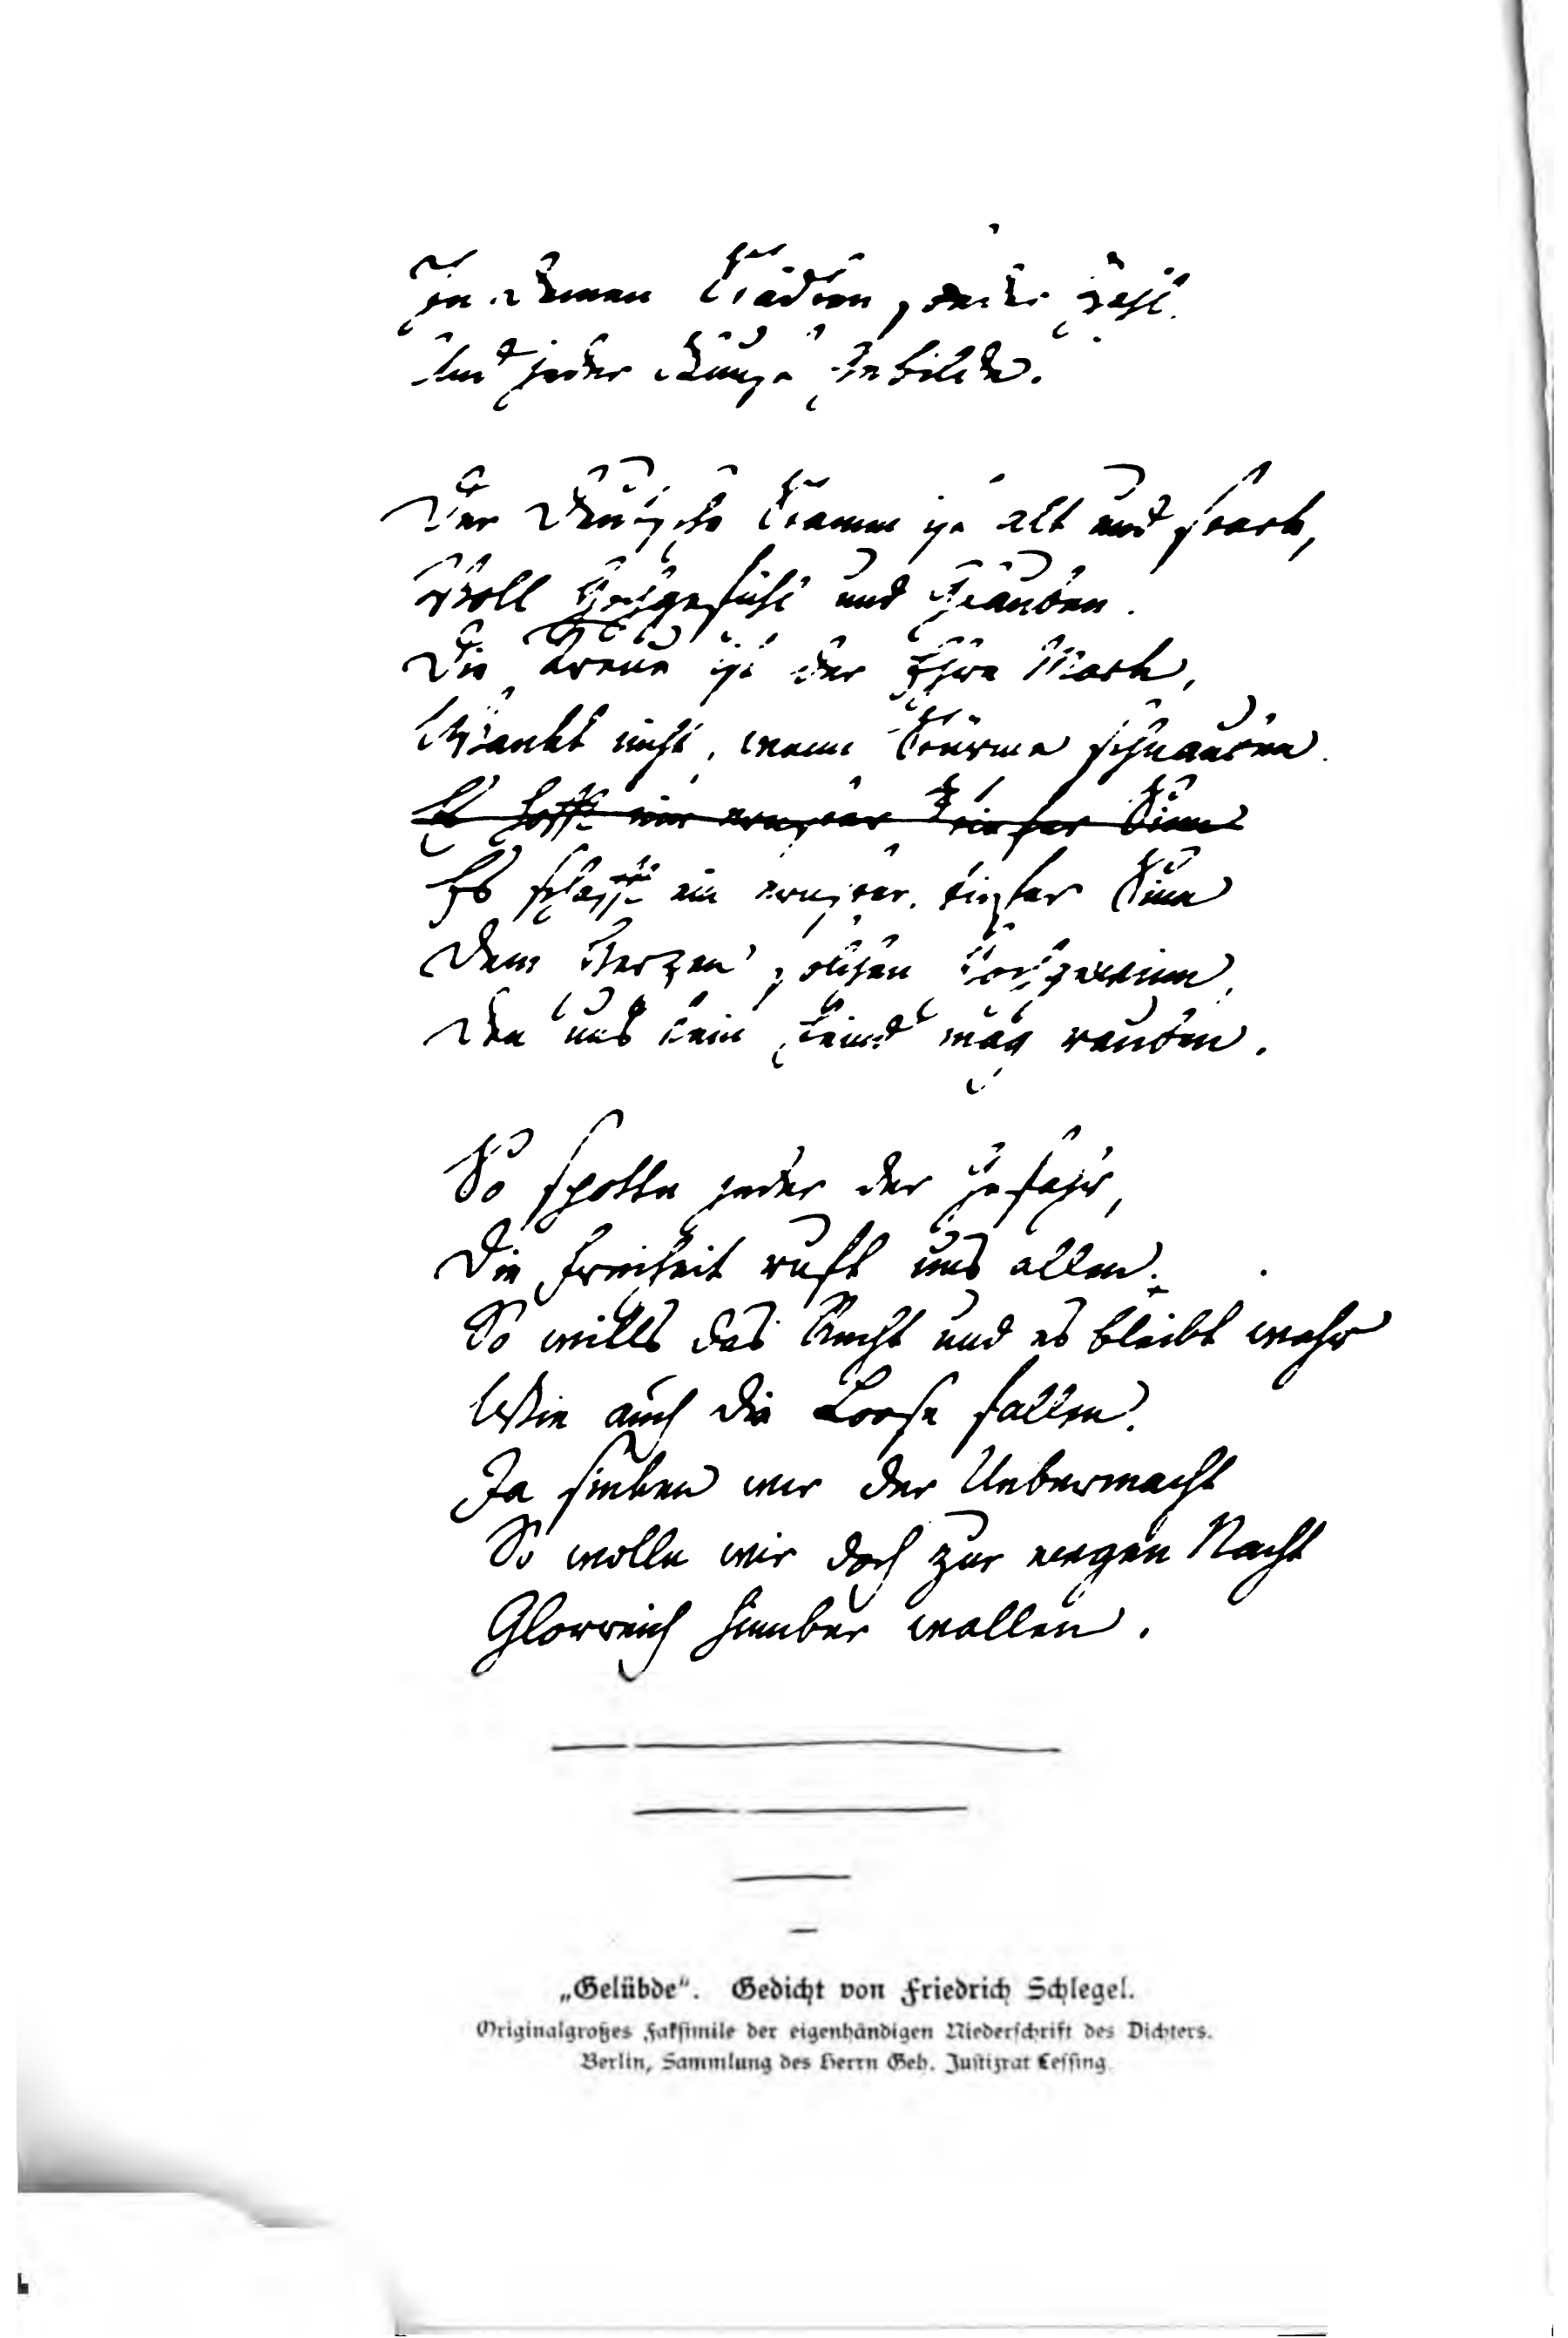 In deinen Städten, deiner Zahl
Und jeder Kunst Gebilde.
Der deutsche Stamm ist alt und stark,
Voll Hochgefühl und Glauben.
Die Treue ist der Ehre Mark,
Wankt nicht, wenn Stürme schnauben.
Es schafft ein ernster, tiefer Sinn
Dem Herzen solchen Hochgewinn,
Den uns kein Feind mag rauben.
So spotte jeder der Gefahr,
Die Freiheit ruft uns allen.
So wills das Recht und es bleibt wahr
Wie auch die Loose fallen.
Ja sinken wir der Uebermacht
So wolln wir doch zur ewgen Nacht
Glorreich hinüber wallen.
„Gelübde“. Gedicht von Friedrich Schlegel.
Originalgroßes Faksimile der eigenhändigen Niederschrift des Dichters.
Berlin, Sammlung des Herrn Geh. Justizrat Lessing.